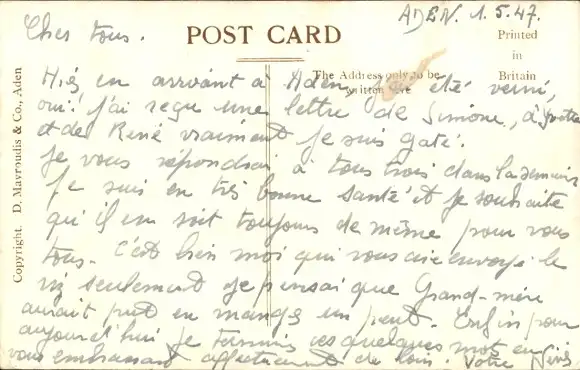 ADEN. 1.5.47.
Cher tous.
POST CARD
Printed
in
Britain
The Address only to be
written here
Copyright. D. Mavroudis & Co., Aden
Hié, en arrivant à Aden, j'ai été verni,
oui! j'ai reçu une lettre de Simone, d'Yvette
et de René vraiment je suis gaté.
Je vous répondrai à tous trois dans la semaine
Je suis en très bonne santé et je souhaite
qu'il en soit toujours de même pour vous
tous. C'est bien moi qui vous aie envoyé le
riz seulement je pensai que Grand-mère
aurait put en manger un peut. Enfin pour
aujourd'hui je termine ces quelques mot en
vous embrassant affectueusement de loin. Votre